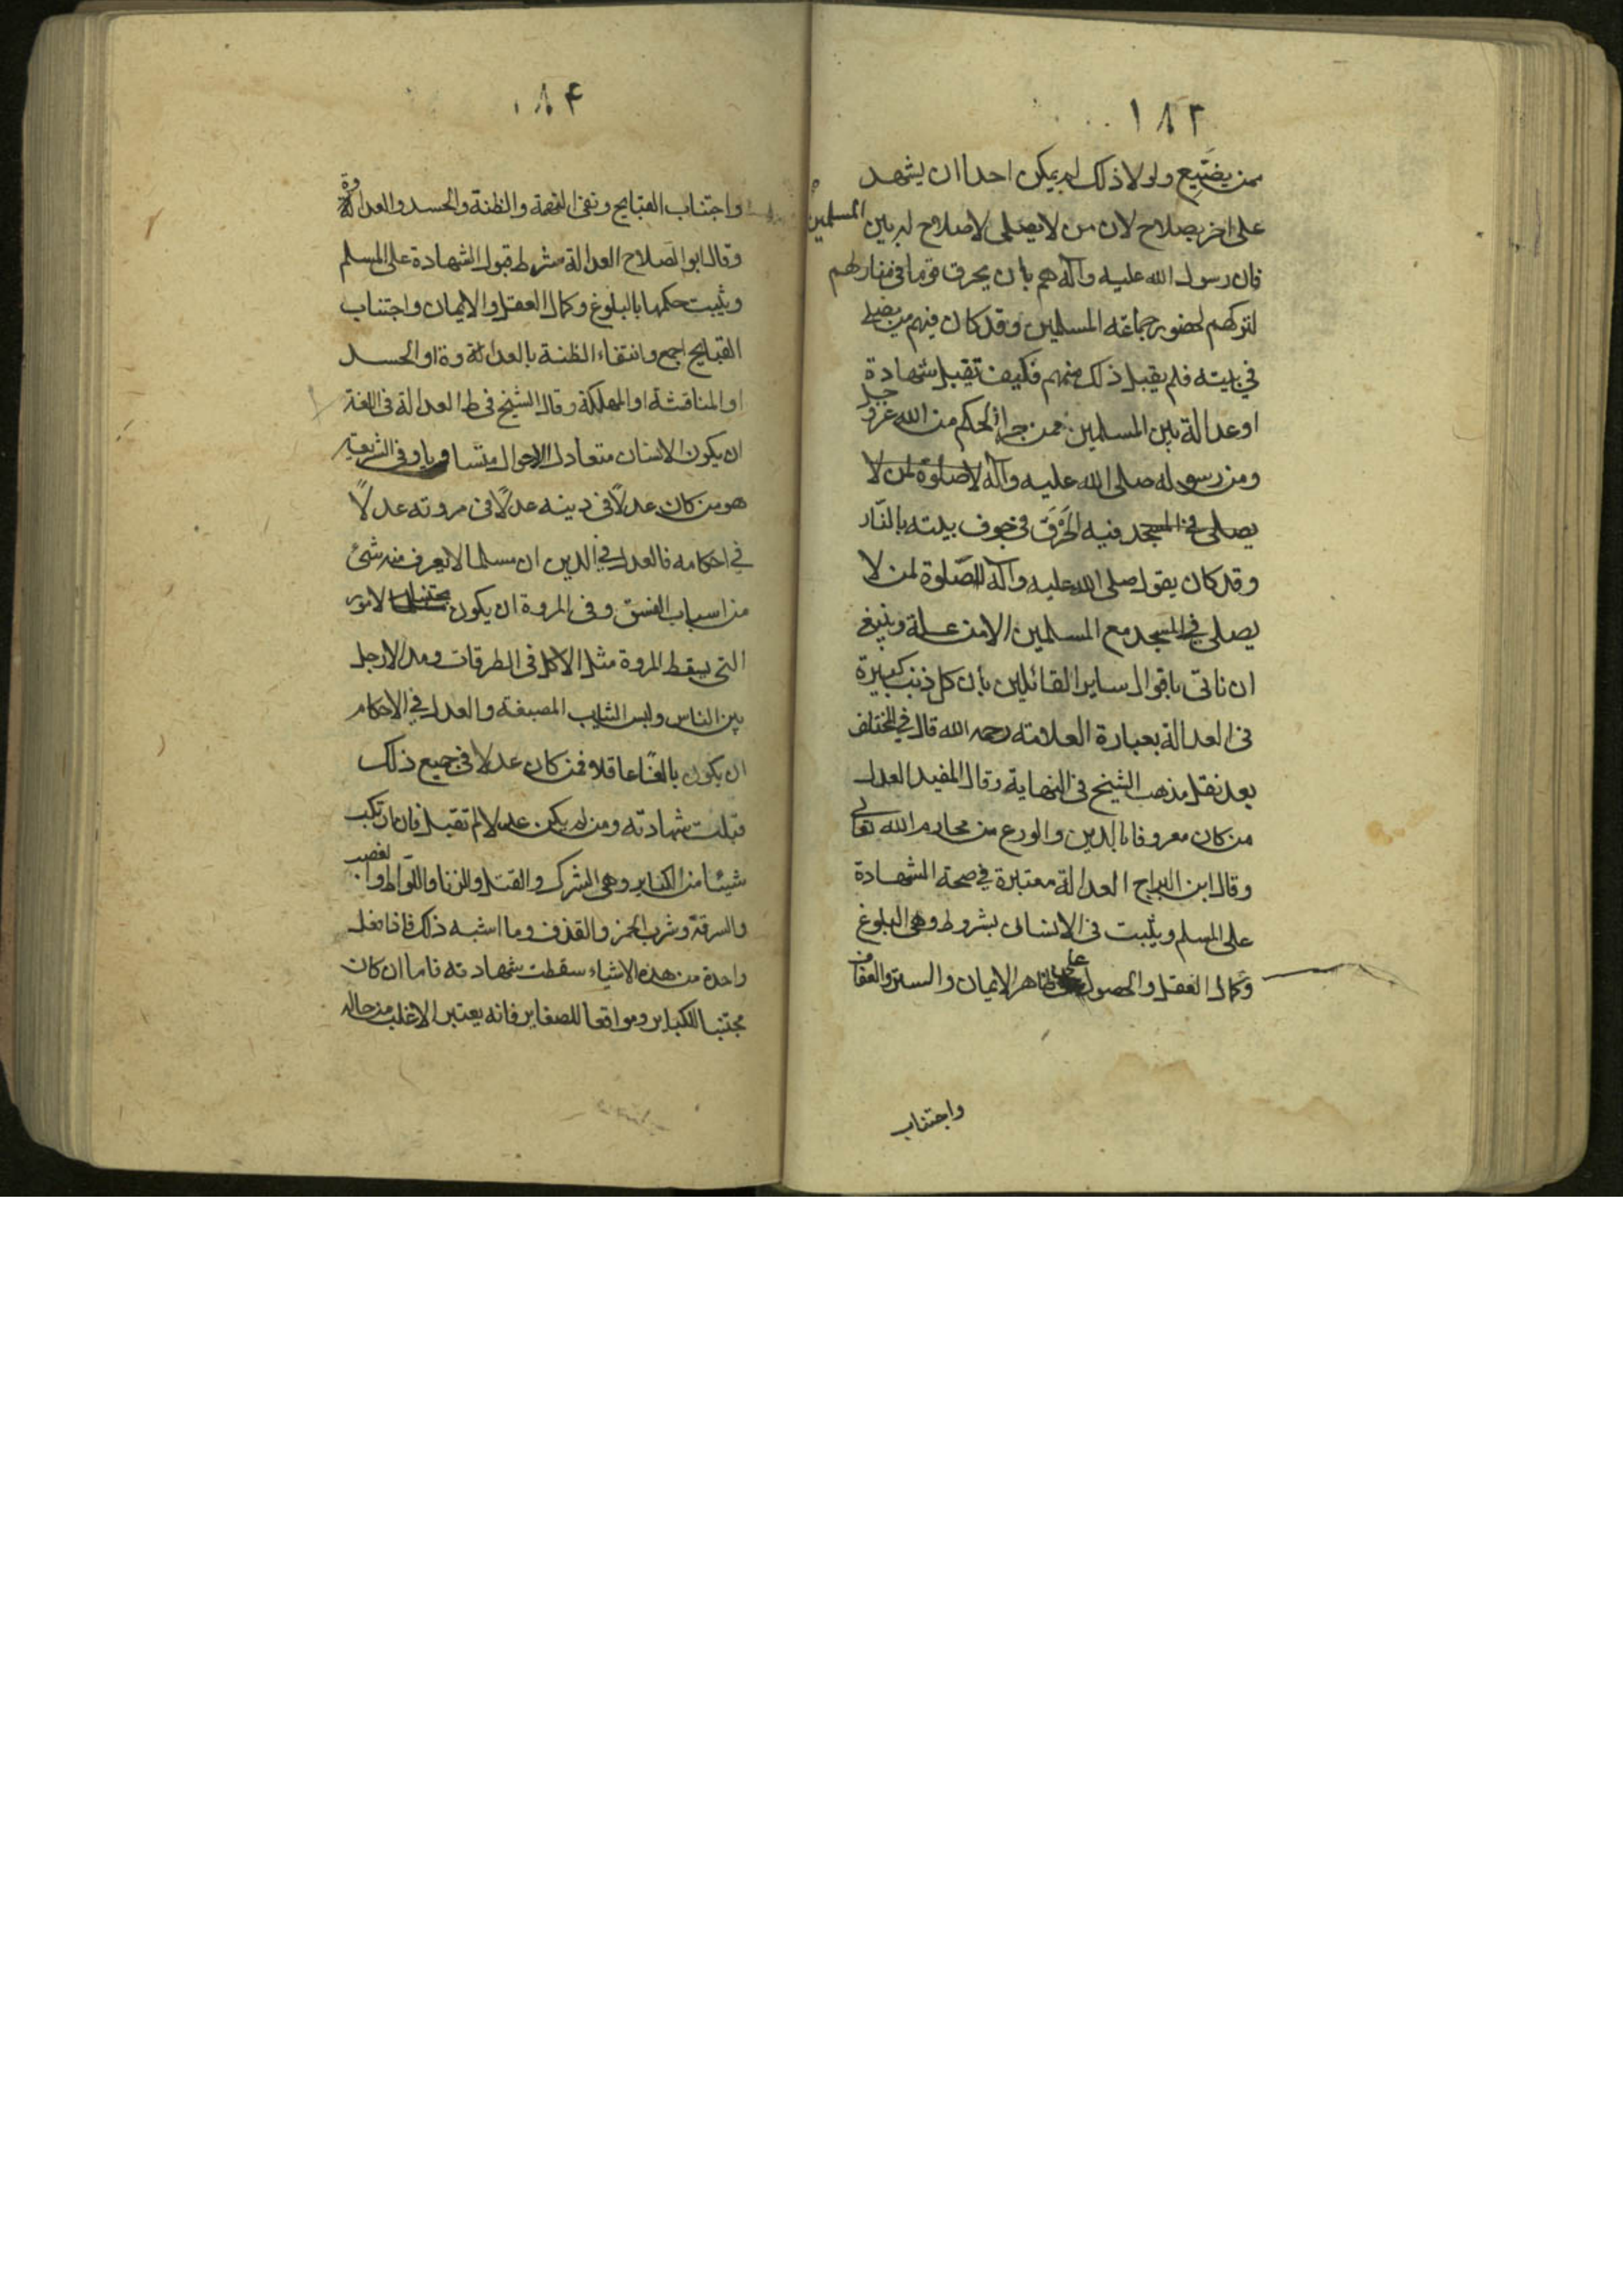 ١٨٣
ممن يضيع ولولا ذلك لم يمكن احدا ان يشهد
على اخر بصلاح لان من لا يصلى لا صلاح له بين المسلمين
فان رسول الله عليه وآله هم بان يحرق قوما فى منازلهم
لتركهم لحضور جماعة المسلمين وقد كان فيهم من يصلى
فى بيته فلم يقبل ذلك منهم فكيف تقبل شهادة
او عدالة بين المسلمين ممن جرى الحكم من الله عز وجل
ومن رسوله صلى الله عليه وآله لا صلوة لمن لا
يصلى فى المسجد فيه الحرق فى جوف بيته بالنار
وقد كان يقول صلى الله عليه وآله لا صلوة لمن لا
يصلى فى المسجد مع المسلمين الا من علة وينبغى
ان ناتى باقوال ساير القائلين بان كل ذنب كبيرة
فى العدالة بعبارة العلامة رحمه الله قال فى المختلف
بعد نقل مذهب الشيخ فى النهاية وقال المفيد العدل
من كان معروفا بالدين والورع من محارم الله تعالى
وقال ابن البراج العدالة معتبرة فى صحة الشهادة
على المسلم ويثبت فى الانسان بشروط وهى البلوغ
وكمال العقل والحصول على ظاهر الايمان والستر والعفاف
واجتناب
١٨۴
واجتناب القبايح ونفى التهمة والظنة والحسد والعداوة
وقال ابو الصلاح العدالة شرط قبول الشهادة على المسلم
ويثبت حكمها بالبلوغ وكمال العقل والايمان واجتناب
القبايح اجمع وانتفاء الظنة بالعداوة او الحسد
او المناقشة او المهلكة وقال الشيخ فى ط العدالة فى اللغة
ان يكون الانسان متعادل الاحوال متساويا وفى الشريعة
هو من كان عدلاً فى دينه عدلاً فى مروته عدلاً
فى احكامه فالعدل فى الدين ان مسلما لا يعرف منه شئ
من اسباب الفسق وفى المروة ان يكون مجتنبا الامور
التى يسقط المروة مثل الاكل فى الطرقات ومد الارجل
بين الناس ولبس الثياب المصبغة والعدل فى الاحكام
ان يكون بالغًا عاقلا فمن كان عدلا فى جميع ذلك
قبلت شهادته ومن لم يكن عدلا لم تقبل فان ارتكب
شيئا من الكباير وهى الشرك والقتل والزنا واللواط والغصب
والسرقة وشرب الخمر والقذف وما اشبه ذلك فاذا فعل
واحدة من هذه الاشياء سقطت شهادته فاما ان كان
مجتنبا للكباير ومواقعا للصغاير فانه يعتبر الاغلب من حاله